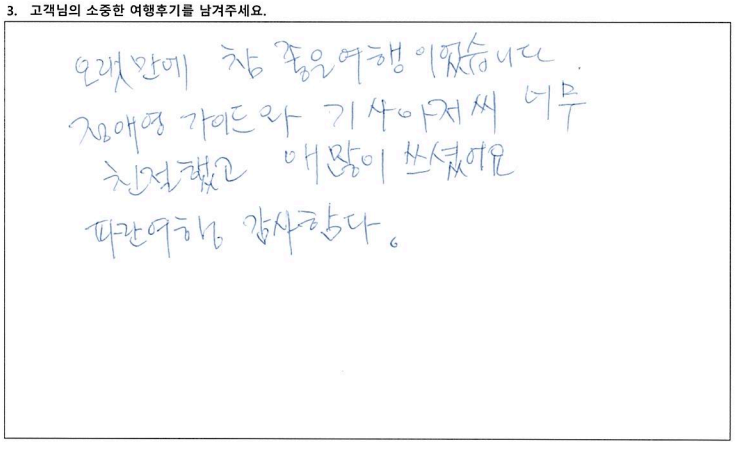 3. 고객님의 소중한 여행후기를 남겨주세요.
오랫만에 참 좋은여행이었습니다.
정애영 가이드와 기사아저씨 너무
친절했고 애많이 쓰셨어요
파란여행 감사합다.